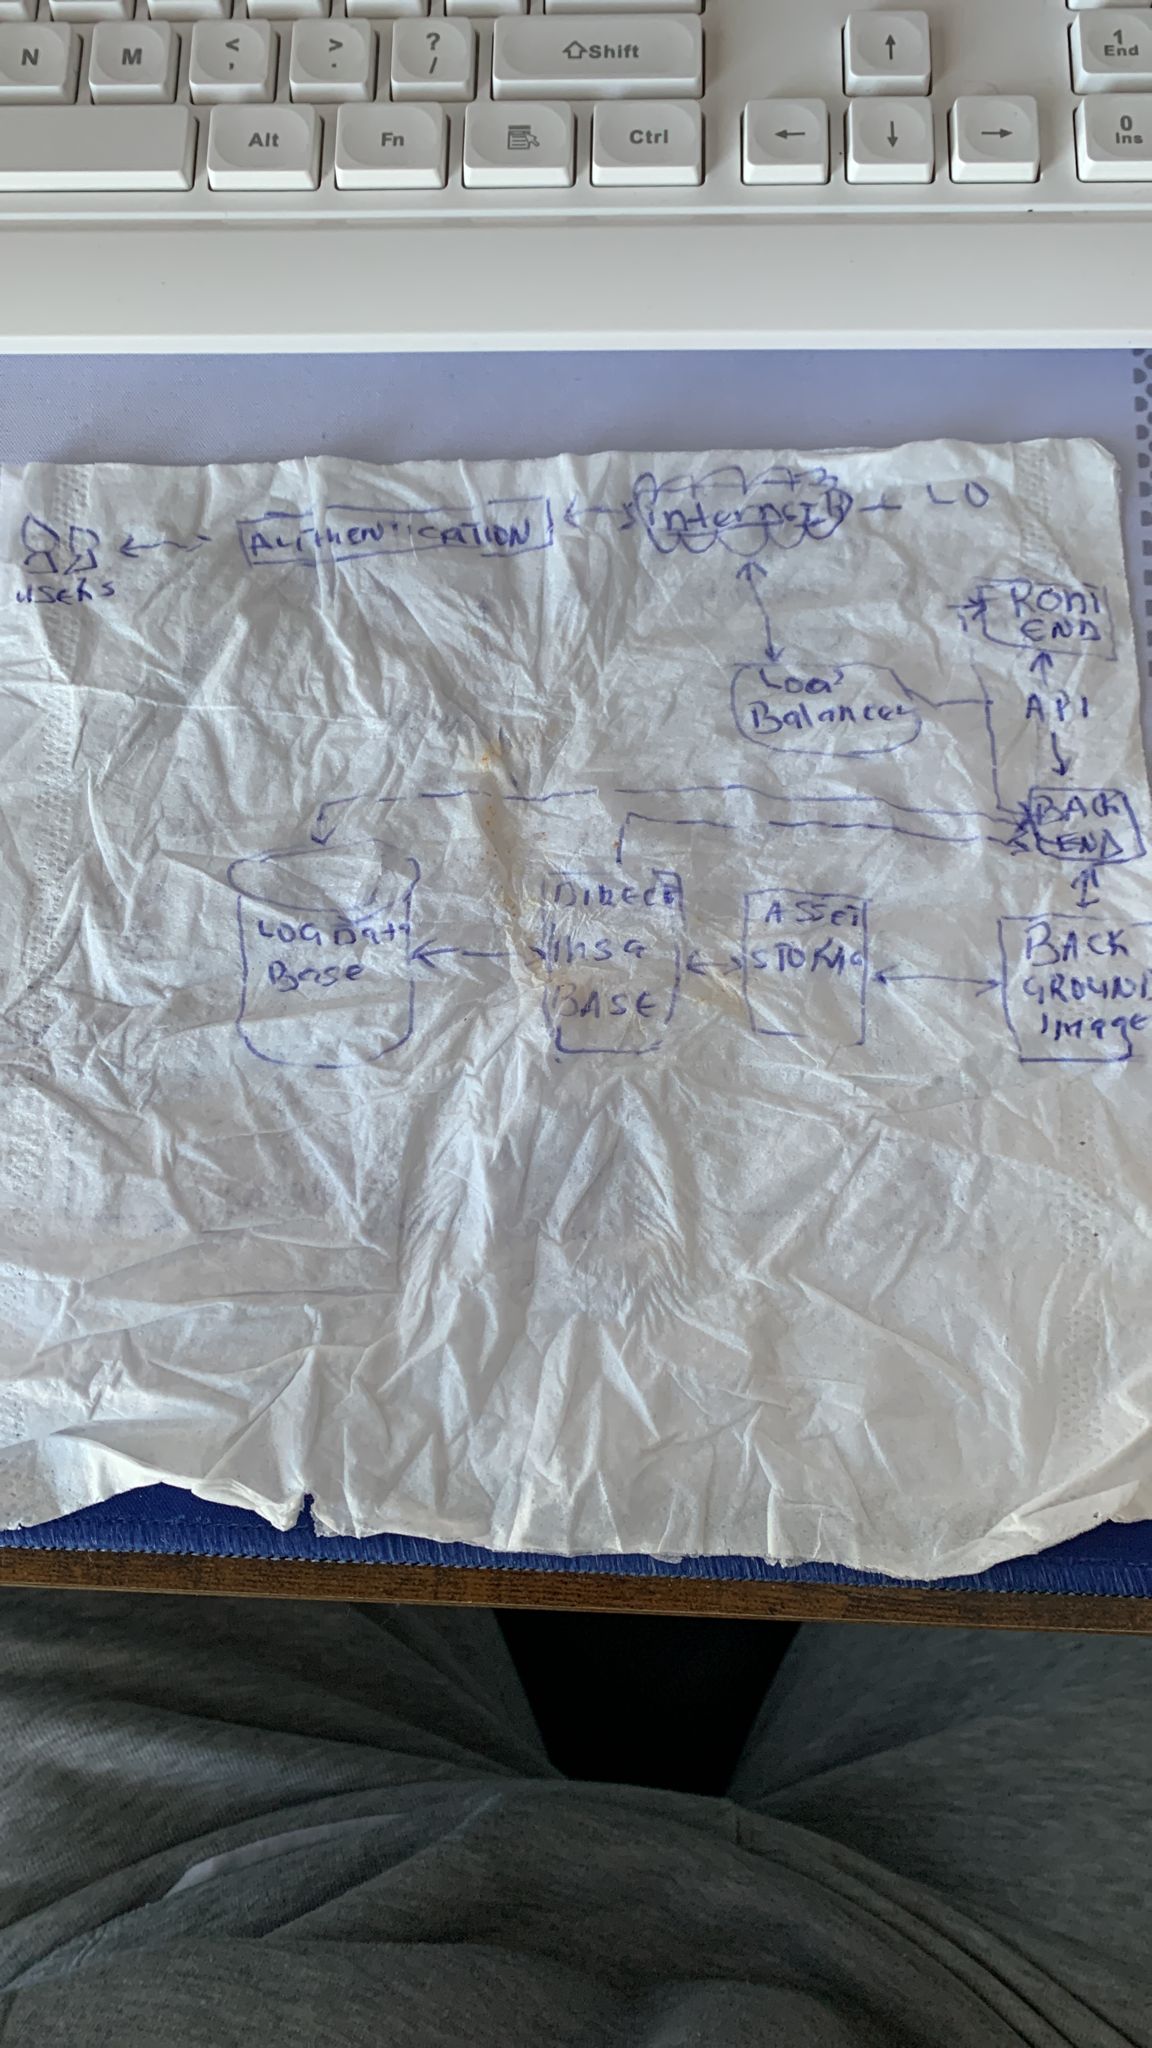 N M < , > . ? / ⇧Shift ↑ 1 End
Alt Fn Ctrl ← ↓ → 0 Ins
users
AUTHENTICATION
internet
LO
RONT
END
Balancer
API
BACK
END
LOG Data
Base
DIRECT
BASE
ASSET
STORAG
BACK
GROUND
image